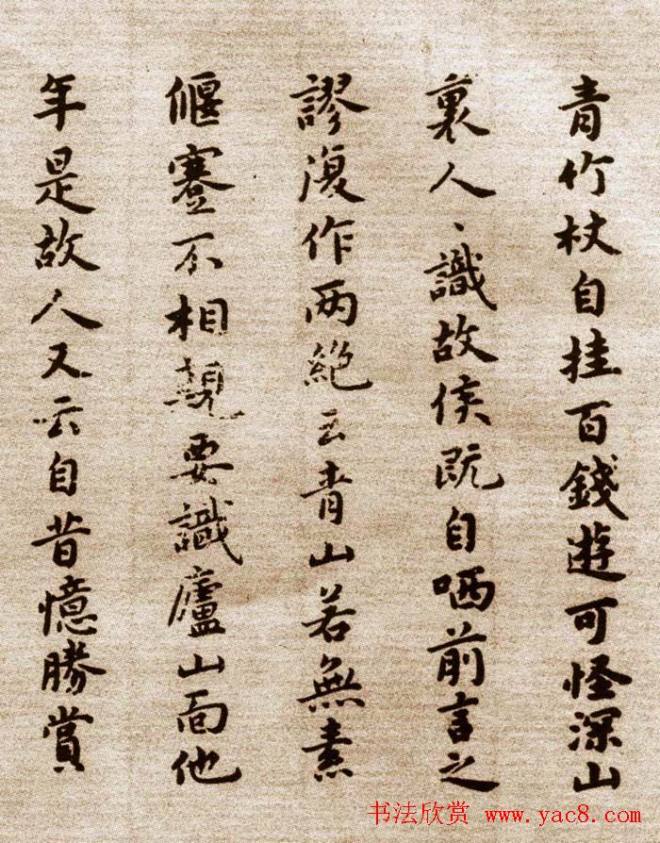 青竹杖自挂百錢遊可怪深山
裏人、識故侯既自哂前言之
謬復作两絶云青山若無素
偃蹇不相親要識廬山面他
年是故人又云自昔憶勝賞
书法欣赏 www.yac8.com